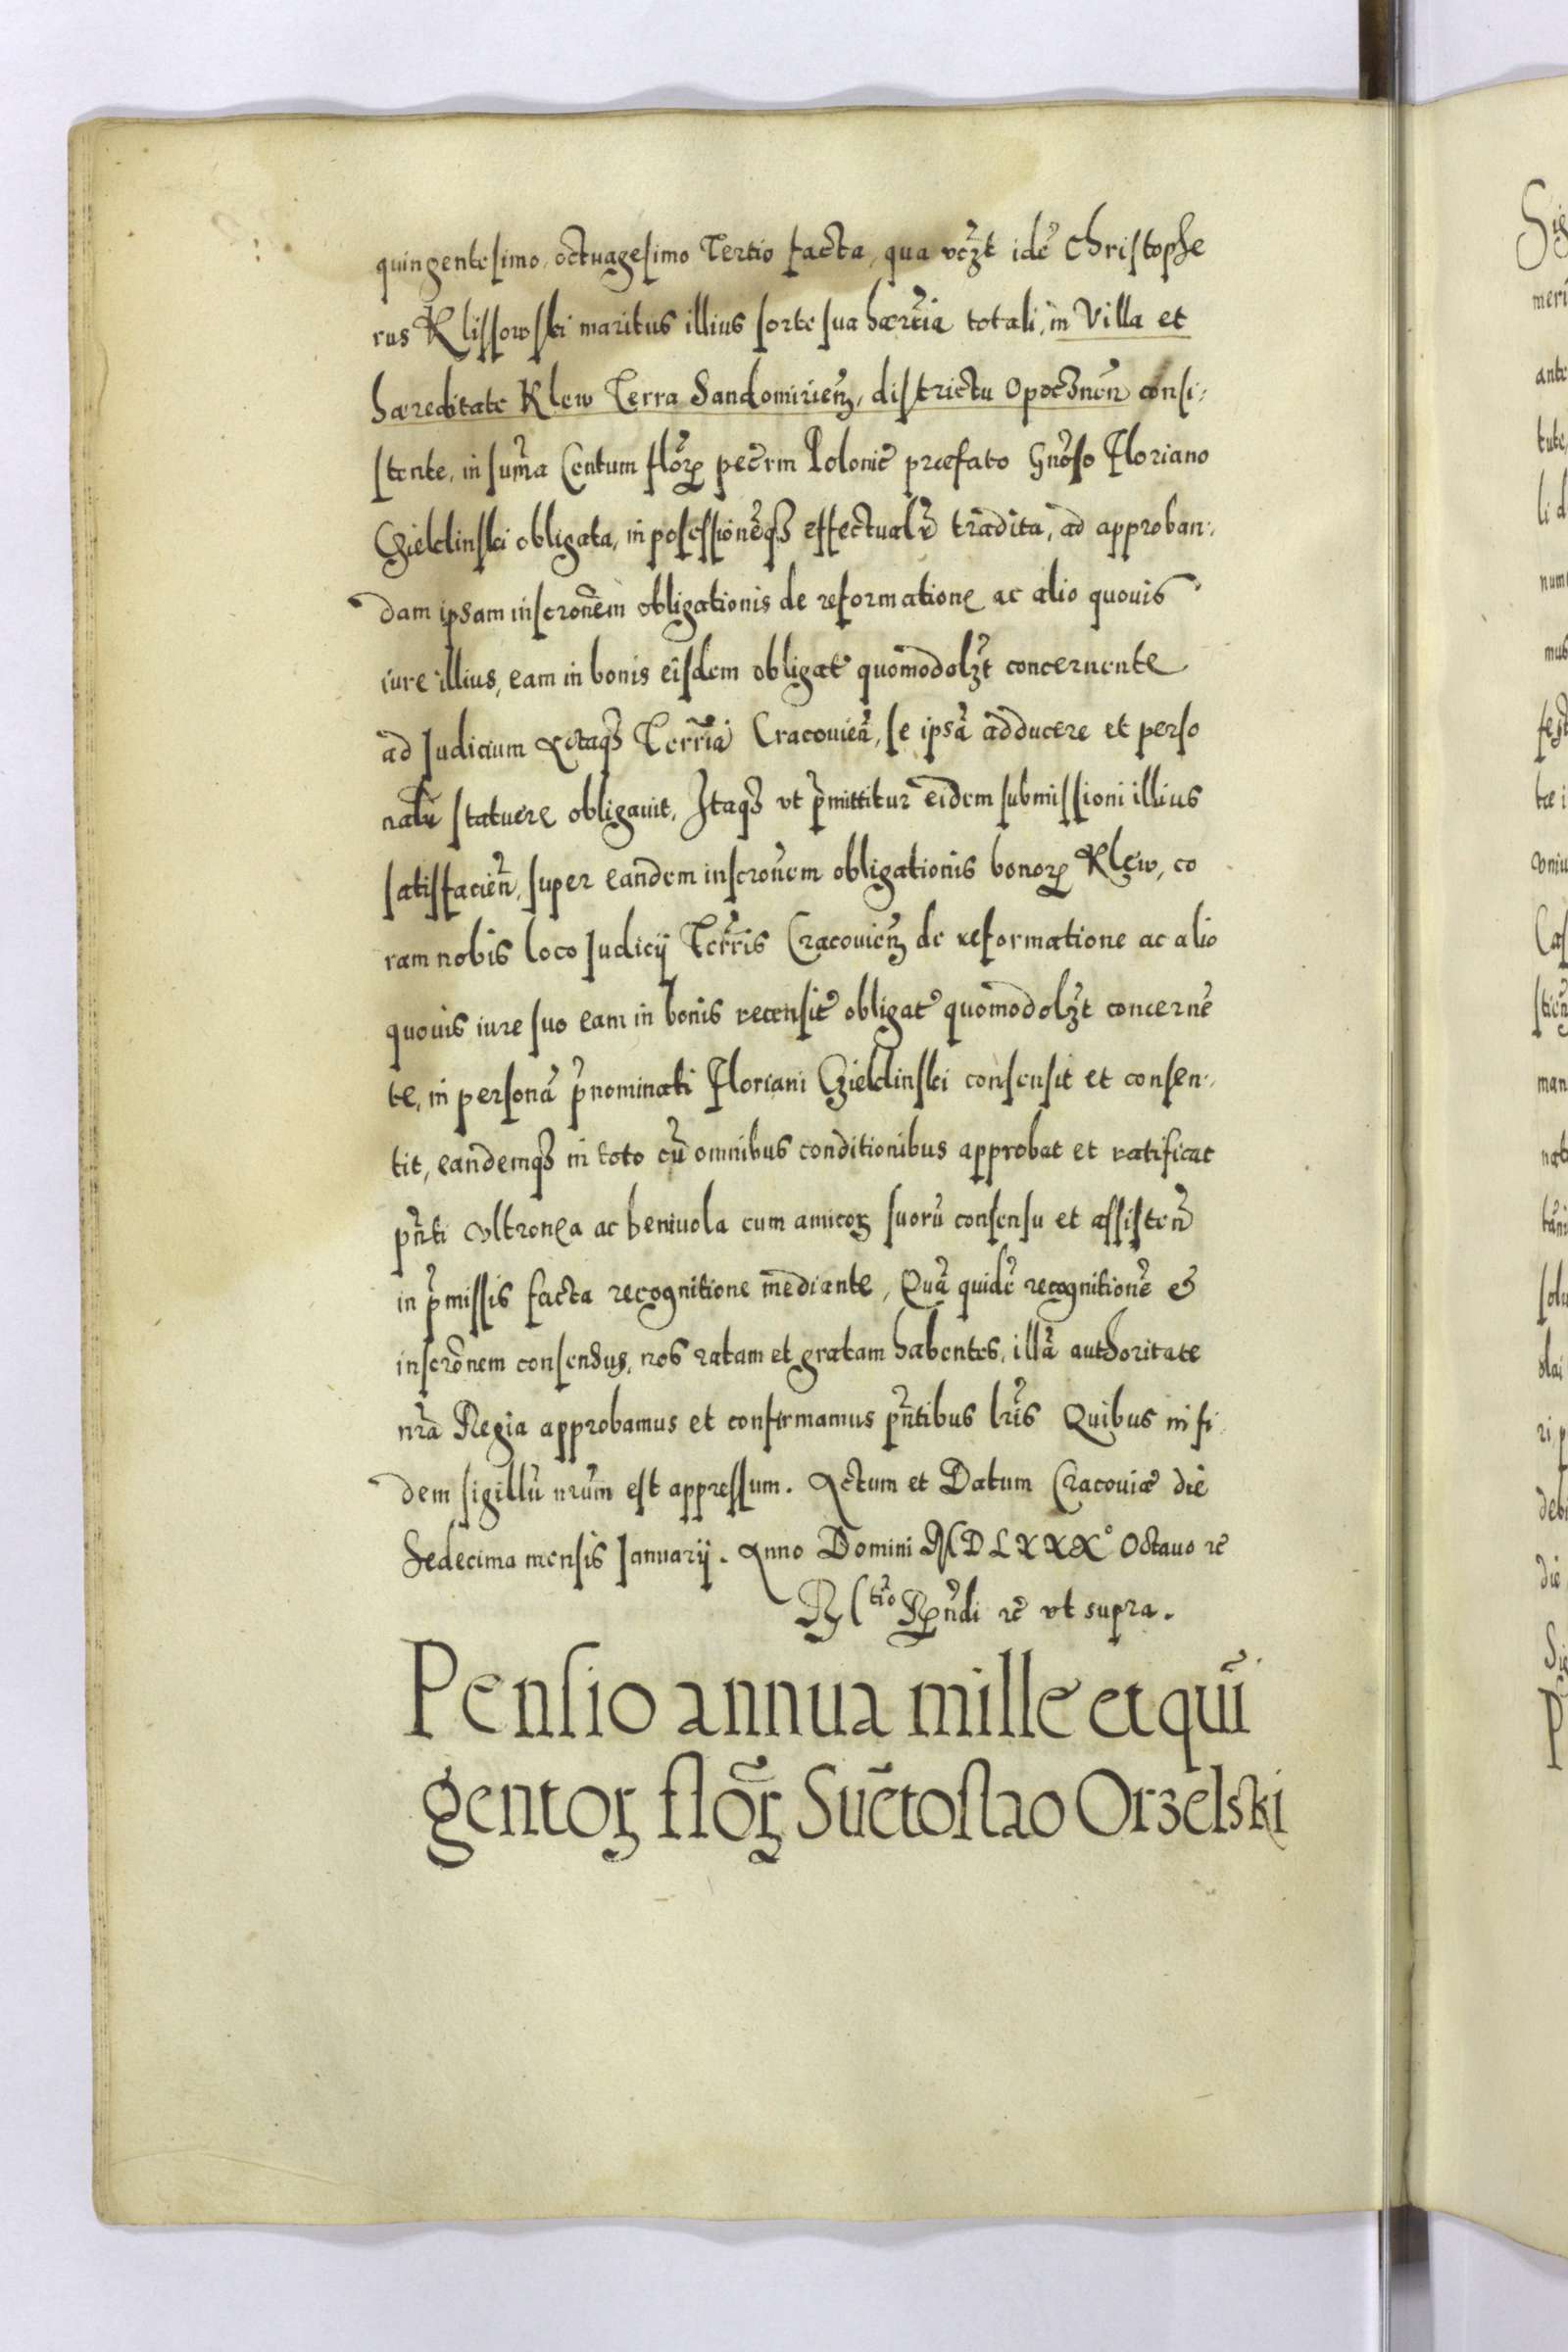 quingentesimo, octuagesimo Tertio facta, qua vcꝫt idē Christophe
rus Klissowski maritus illius sorte sua hærēria totali, in Villa et
hæreditate Klew Terra Sandomirienꝫ, districtu Opocznēn consi:
stente, in sum̄a Centum flōrꝝ pecrm Polonic̄ præfato Gnōso Floriano
Gieldinski obligata, in posessionēqꝫ effectualr̄ tradita, ad approban:
dam ipsam inscronēm obligationis de reformatione ac alio quouis
iure illius, eam in bonis eisdem obligat̄ quomodolꝫt concernente
ad Iudicium Actaqꝫ Terrīa Cracouieā, se ipsā adducere et perso
nalr̄ statuere obligauit, Itaqꝫ vt p̄mittitur eidem submissioni illius
satisfacieñ, super eandem inscronēm obligationis bonorꝝ Klew, co
ram nobis loco Iudicij Terrīs Cracouienꝫ de reformatione ac alio
quouis iure suo eam in bonis recensit̄ obligat̄ quomodolꝫt concernē
te, in personā p̄nominati Floriani Gieldinski consensit et consen:
tit, eandemqꝫ in toto cū omnibus conditionibus approbat et ratificat
pn̄ti vltronea ac beniuola cum amicoꝝ suorū consensu et assisteñ
in p̄missis facta recognitione mediante, Quā quidē recognitionē &
inscrōnem consensus, nos ratam et gratam habentes, illā authoritate
nrā Regia approbamus et confirmamus pn̄tibus lrīs Quibus in fi
dem sigillū nrūm est appressum. Actum et Datum Cracouiæ die
Sedecima mensis Ianuarij. Anno Domini MDLXXX° Octauo rc̄
R͡l(tio Rn̄di rc̄ vt supra.
Pensio annua mille et quī
gentoꝝ flōꝝ Suētoslao Orzelski